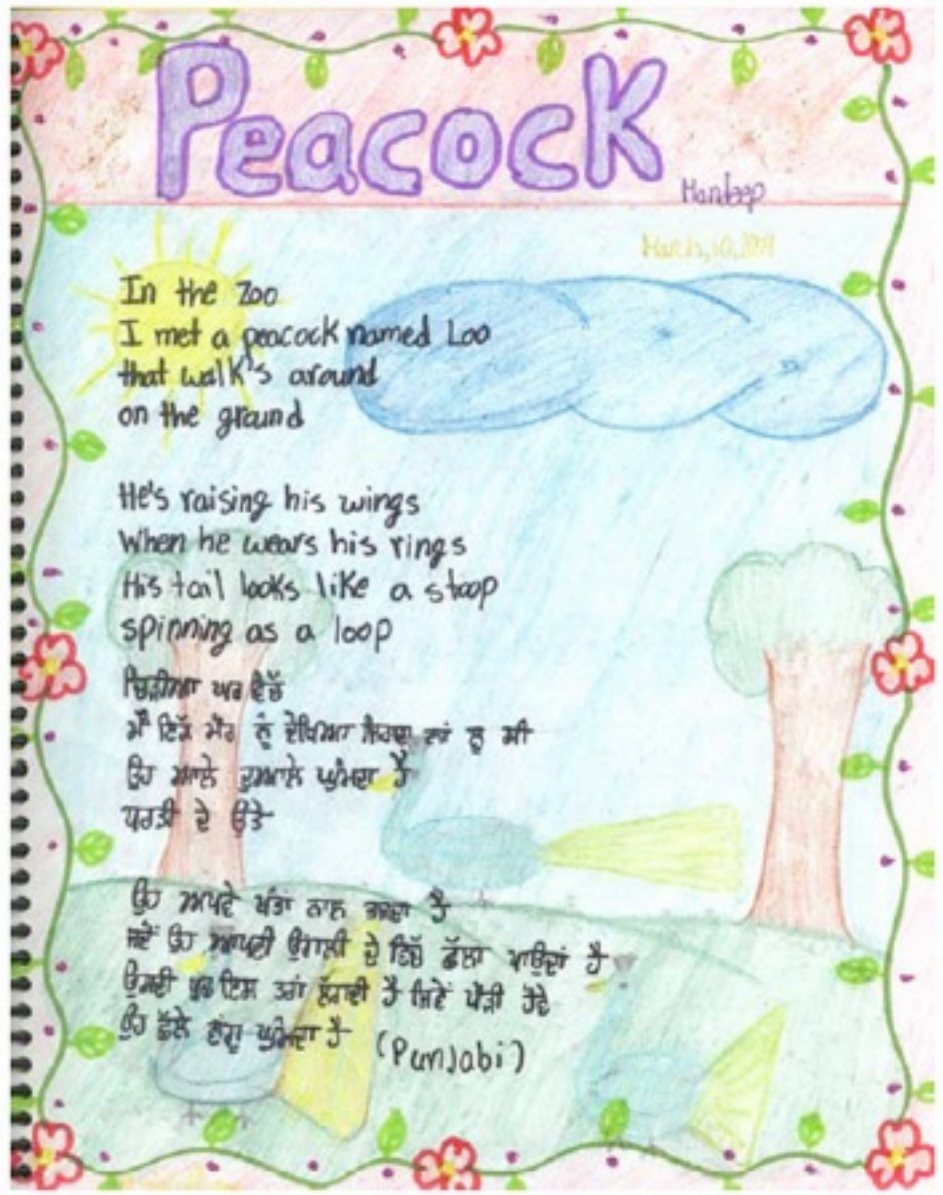 Peacock
Mandeep
March, 10, 2009
In the Zoo
I met a peacock named Loo
that walk's around
on the ground
He's raising his wings
When he wears his rings
His tail looks like a stoop
spinning as a loop
ਚਿੜੀਆ ਘਰ ਵਿੱਚ
ਮੈਂ ਇੱਕ ਮੋਰ ਨੂੰ ਦੇਖਿਆ ਨਾਂ ਲੂ ਸੀ
ਉਹ ਆਲੇ ਦੁਆਲੇ ਘੁੰਮਦਾ ਹੈ
ਧਰਤੀ ਦੇ ਉਤੇ
ਉਹ ਆਪਣੇ ਖੰਭਾ ਨਾਲ ਹੈ
ਉਹ ਆਪਣੀ ਉਂਗਲੀ ਦੇ ਵਿੱਚ ਛੱਲਾ ਪਾਉਂਦਾ ਹੈ
ਉਸਦੀ ਇਸ ਤਰਾਂ ਹੈ ਜਿਵੇਂ ਪੌੜੀ ਹੋਵੇ
ਉਹ ਛੱਲੇ ਵਾਂਗੂ ਘੁੰਮਦਾ ਹੈ
(Punjabi)